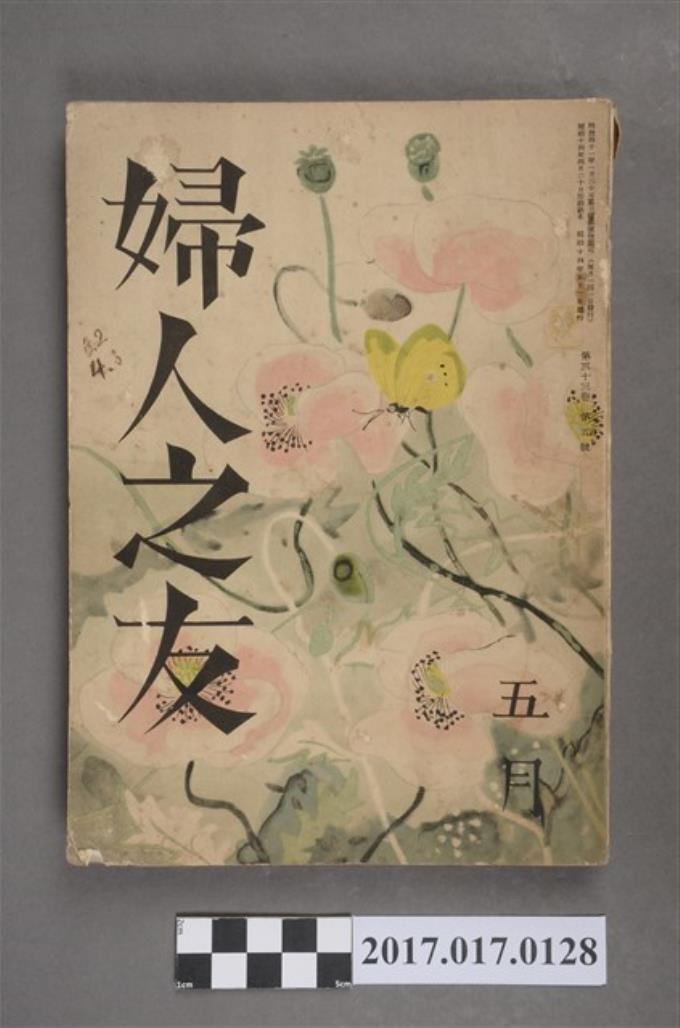 婦人之友
五月
第三十三卷 第五號
8.2
4.3
2cm
1cm
5cm
2017.017.0128